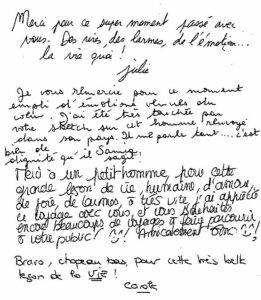 Merci pour ce super moment passé avec
vous. Des rires, des larmes, de l'émotion...
la vie quoi !
Julie
Je vous remercie pour ce moment
empli d'émotions venues du
cœur. J'ai été très touchée par
votre sketch sur cet homme renvoyé
dans son pays. Il me parle tant.... c'est
bien de
dignité qu'il s'agit.
Merci à un petit homme, pour cette
grande leçon de vie, humaine, d'amour,
de joie, de larmes, à très vite, j'ai apprécié
ce voyage avec vous, et vous souhaite
encore beaucoup de voyages à faire parcourir
à votre public! Amicalement
Bravo, chapeau bas, pour cette très belle
leçon de la vie !